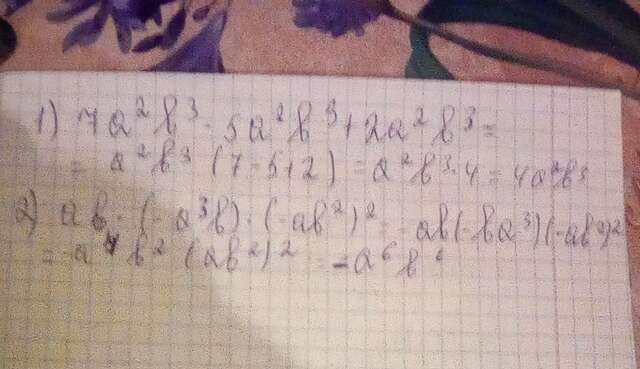 1) 7a²b³ - 5a²b³ + 2a²b³ =
= a²b³ (7-5+2) = a²b³·4 = 4a²b³
2) ab · (-a³b) · (-ab²)² = ab(-ba³)(-ab²)²
= -a⁴b² (ab²)² = -a⁶b⁶